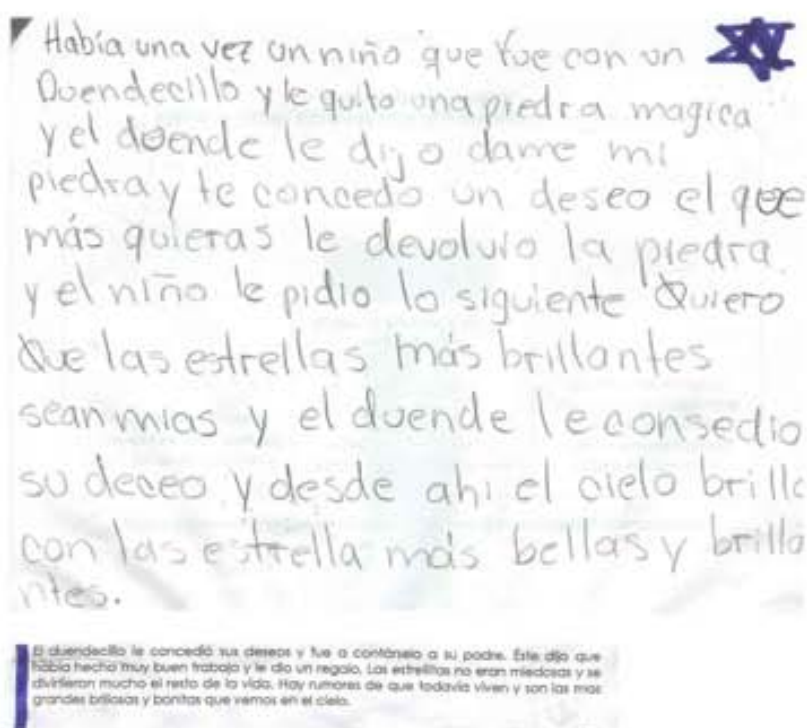 Había una vez un niño que fue con un
Duendecillo y le quito una piedra magica
y el duende le dijo dame mi
piedra y te concedo un deseo el que
más quieras le devolvio la piedra
y el niño le pidio lo siguiente Quiero
Que las estrellas más brillantes
sean mias y el duende le consedio
su deceo y desde ahi el cielo brilla
con las estrella más bellas y brilla
ntes.
El duendecillo le concedió sus deseos y fue a contárselo a su padre. Éste dijo que
había hecho muy buen trabajo y le dio un regalo. Las estrellitas no eran miedosas y se
divirtieron mucho el resto de la vida. Hay rumores de que todavía viven y son las mas
grandes brillosas y bonitas que vemos en el cielo.